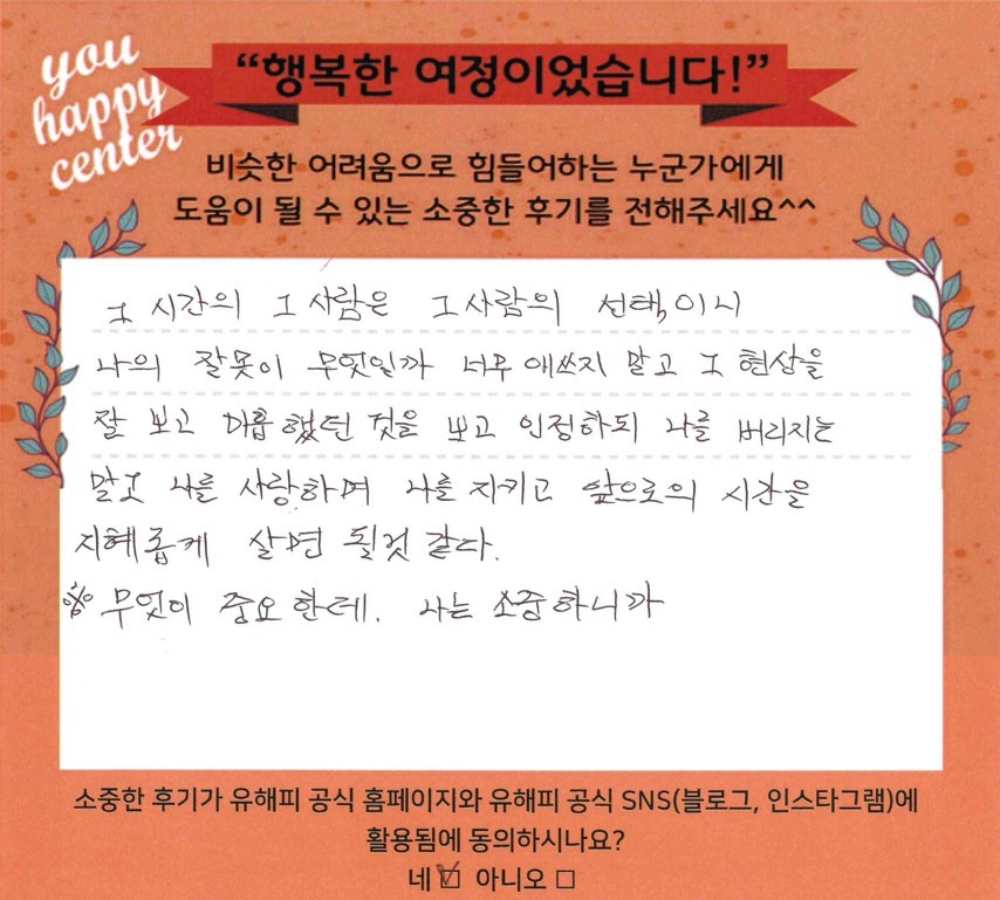 you
happy
center
“행복한 여정이었습니다!”
비슷한 어려움으로 힘들어하는 누군가에게
도움이 될 수 있는 소중한 후기를 전해주세요^^
그 시간의 그 사람은 그 사람의 선택이니
나의 잘못이 무엇일까 너무 애쓰지 말고 그 현상을
잘 보고 미흡했던 것을 보고 인정하되 나를 버리지는
말고 나를 사랑하며 나를 지키고 앞으로의 시간을
지혜롭게 살면 될것 같다.
※ 무엇이 중요한데. 나는 소중하니까
소중한 후기가 유해피 공식 홈페이지와 유해피 공식 SNS(블로그, 인스타그램)에
활용됨에 동의하시나요?
네 ☑ 아니오 □